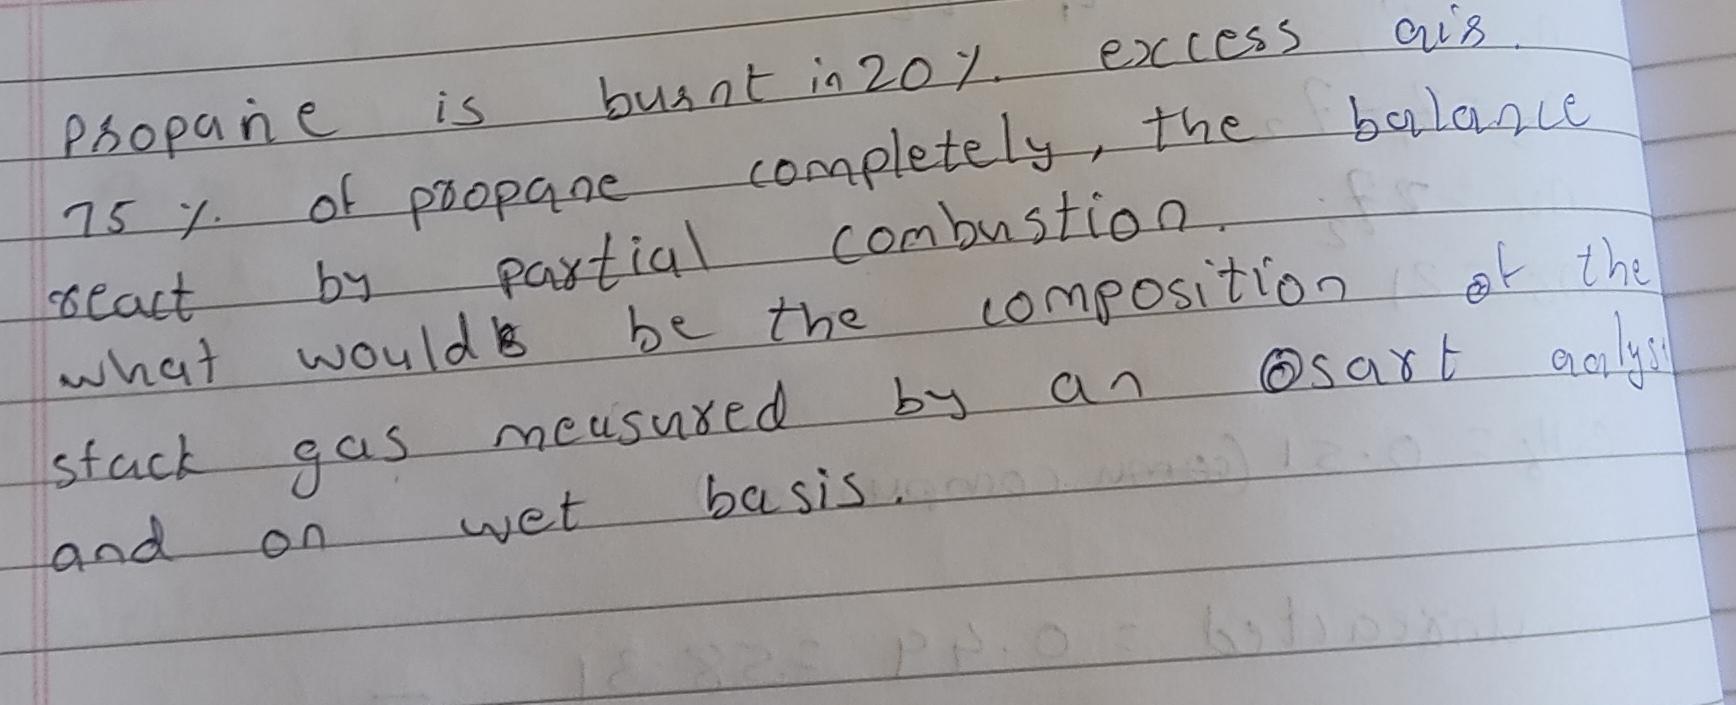 Propane is burnt in 20 %. excess air.
75 %. of propane completely, the balance
react by partial combustion.
what would be the composition of the
stack gas measured by an Osart aalysi
and on wet basis.